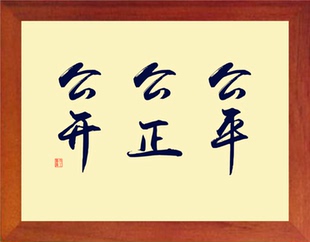 公平
公正
公开